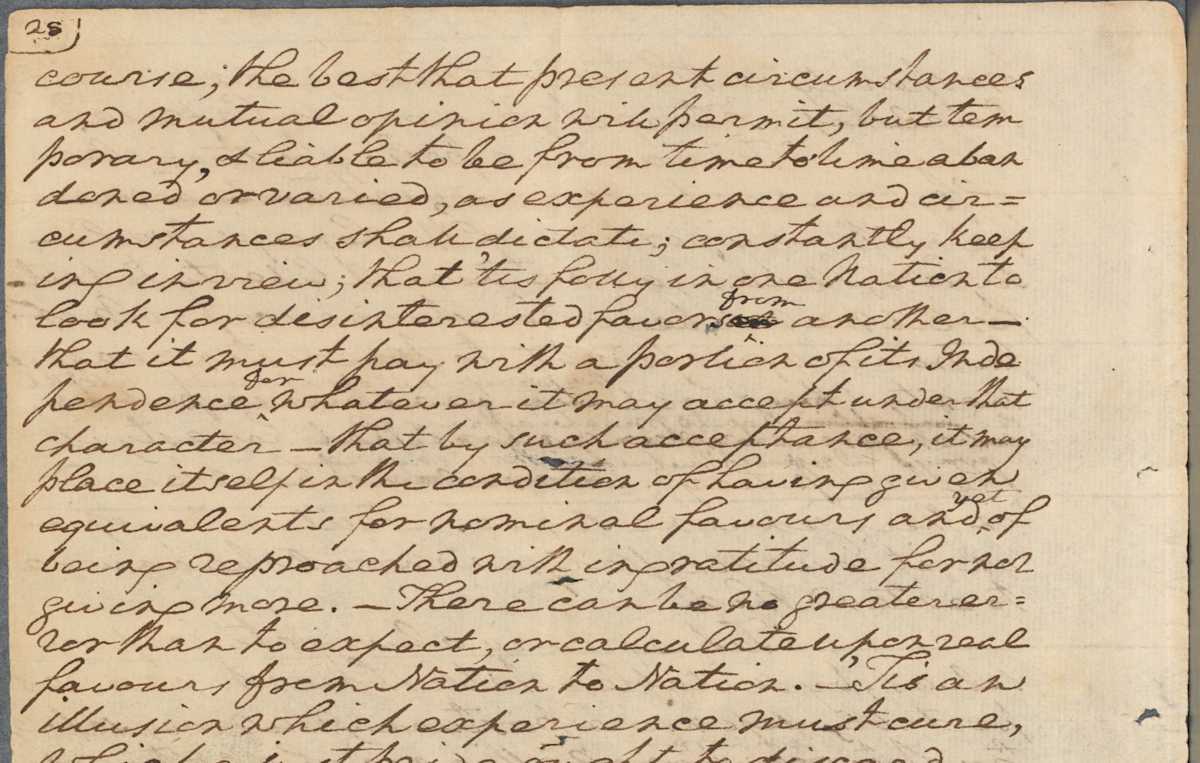 28
course; the best that present circumstances
and mutual opinion will permit, but tem
porary, & liable to be from time to time aban
doned or varied, as experience and cir=
cumstances shall dictate; constantly keep
ing in view; that 'tis folly in one Nation to
look for disinterested favors from another—
that it must pay with a portion of its Inde
pendence for whatever it may accept under that
character — that by such acceptance, it may
place itself in the condition of having given
equivalents for nominal favours and yet of
being reproached with ingratitude for not
giving more. — There can be no greater er=
ror than to expect, or calculate upon real
favours from Nation to Nation. — 'Tis an
illusion which experience must cure,
which a just pride ought to discard